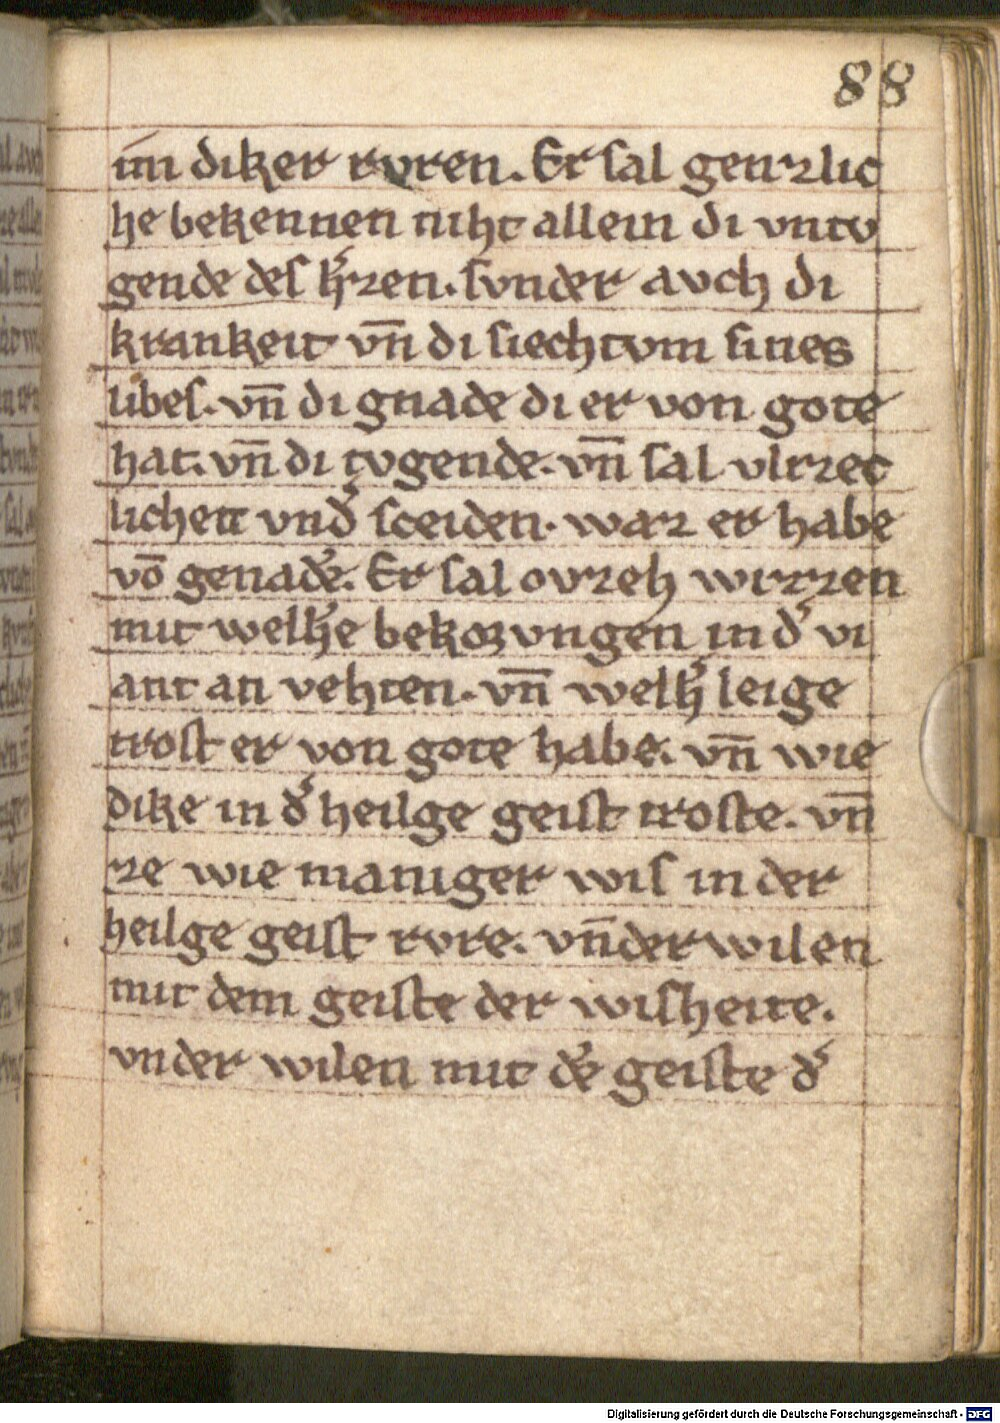 88
im diker rvren. Er sal genzlic
he bekennen niht allein di vntv
gende des h'zen. svnder avch di
krankeit vn̄ di siechtvm sines
libes. vn̄ di gnade di er von gote
hat. vn̄ di tvgende. vn̄ sal vlizec
lichen vnd' sceiden. waz er habe
vō genadē. Er sal ovzeh wizzen
mit welh'e bekorvngen in d' vi
ant an vehten. vn̄ welh' leige
trost er von gote habe. vn̄ wie
dike in d' heilge geist troste. vn̄
ze wie maniger wis in der
heilge geist rvre. vn̄der wilen
mit dem geiste der wisheite.
vnder wilen mit dē geiste d'
Digitalisierung gefördert durch die Deutsche Forschungsgemeinschaft - DFG